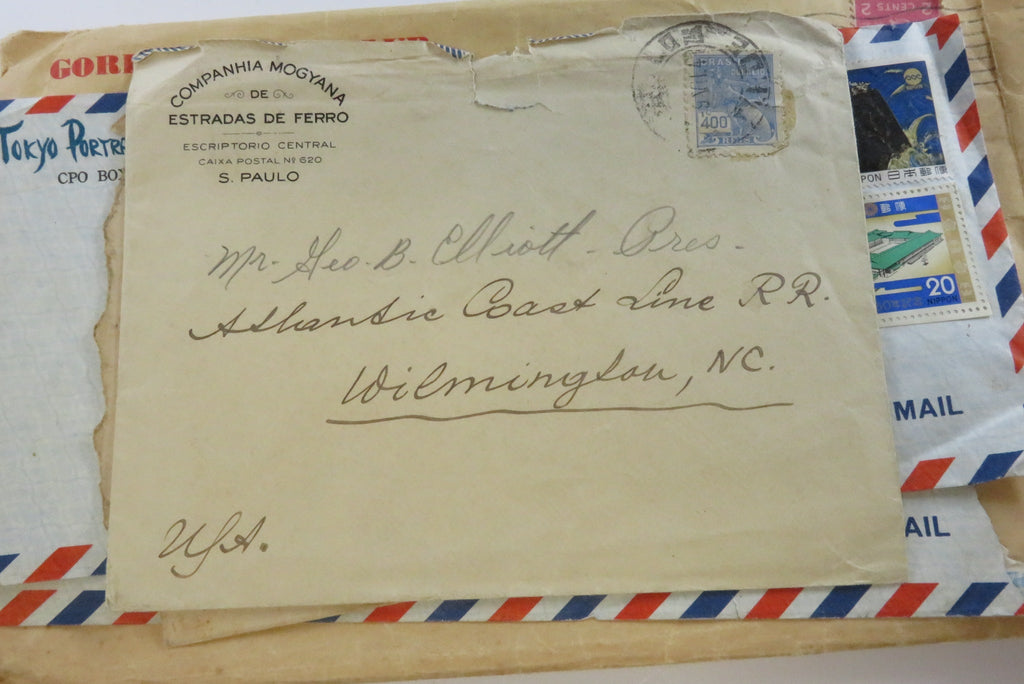 2 CENTS 2
COMPANHIA MOGYANA
DE
ESTRADAS DE FERRO
ESCRIPTORIO CENTRAL
CAIXA POSTAL Nº 620
S. PAULO
BRASIL
CORREIO
400
TOKYO
CPO
日本郵便
郵便
20
NIPPON
Mr. Geo. B. Elliott - Pres -
Atlantic Coast Line RR.
Wilmington, NC.
USA.
MAIL
AIL